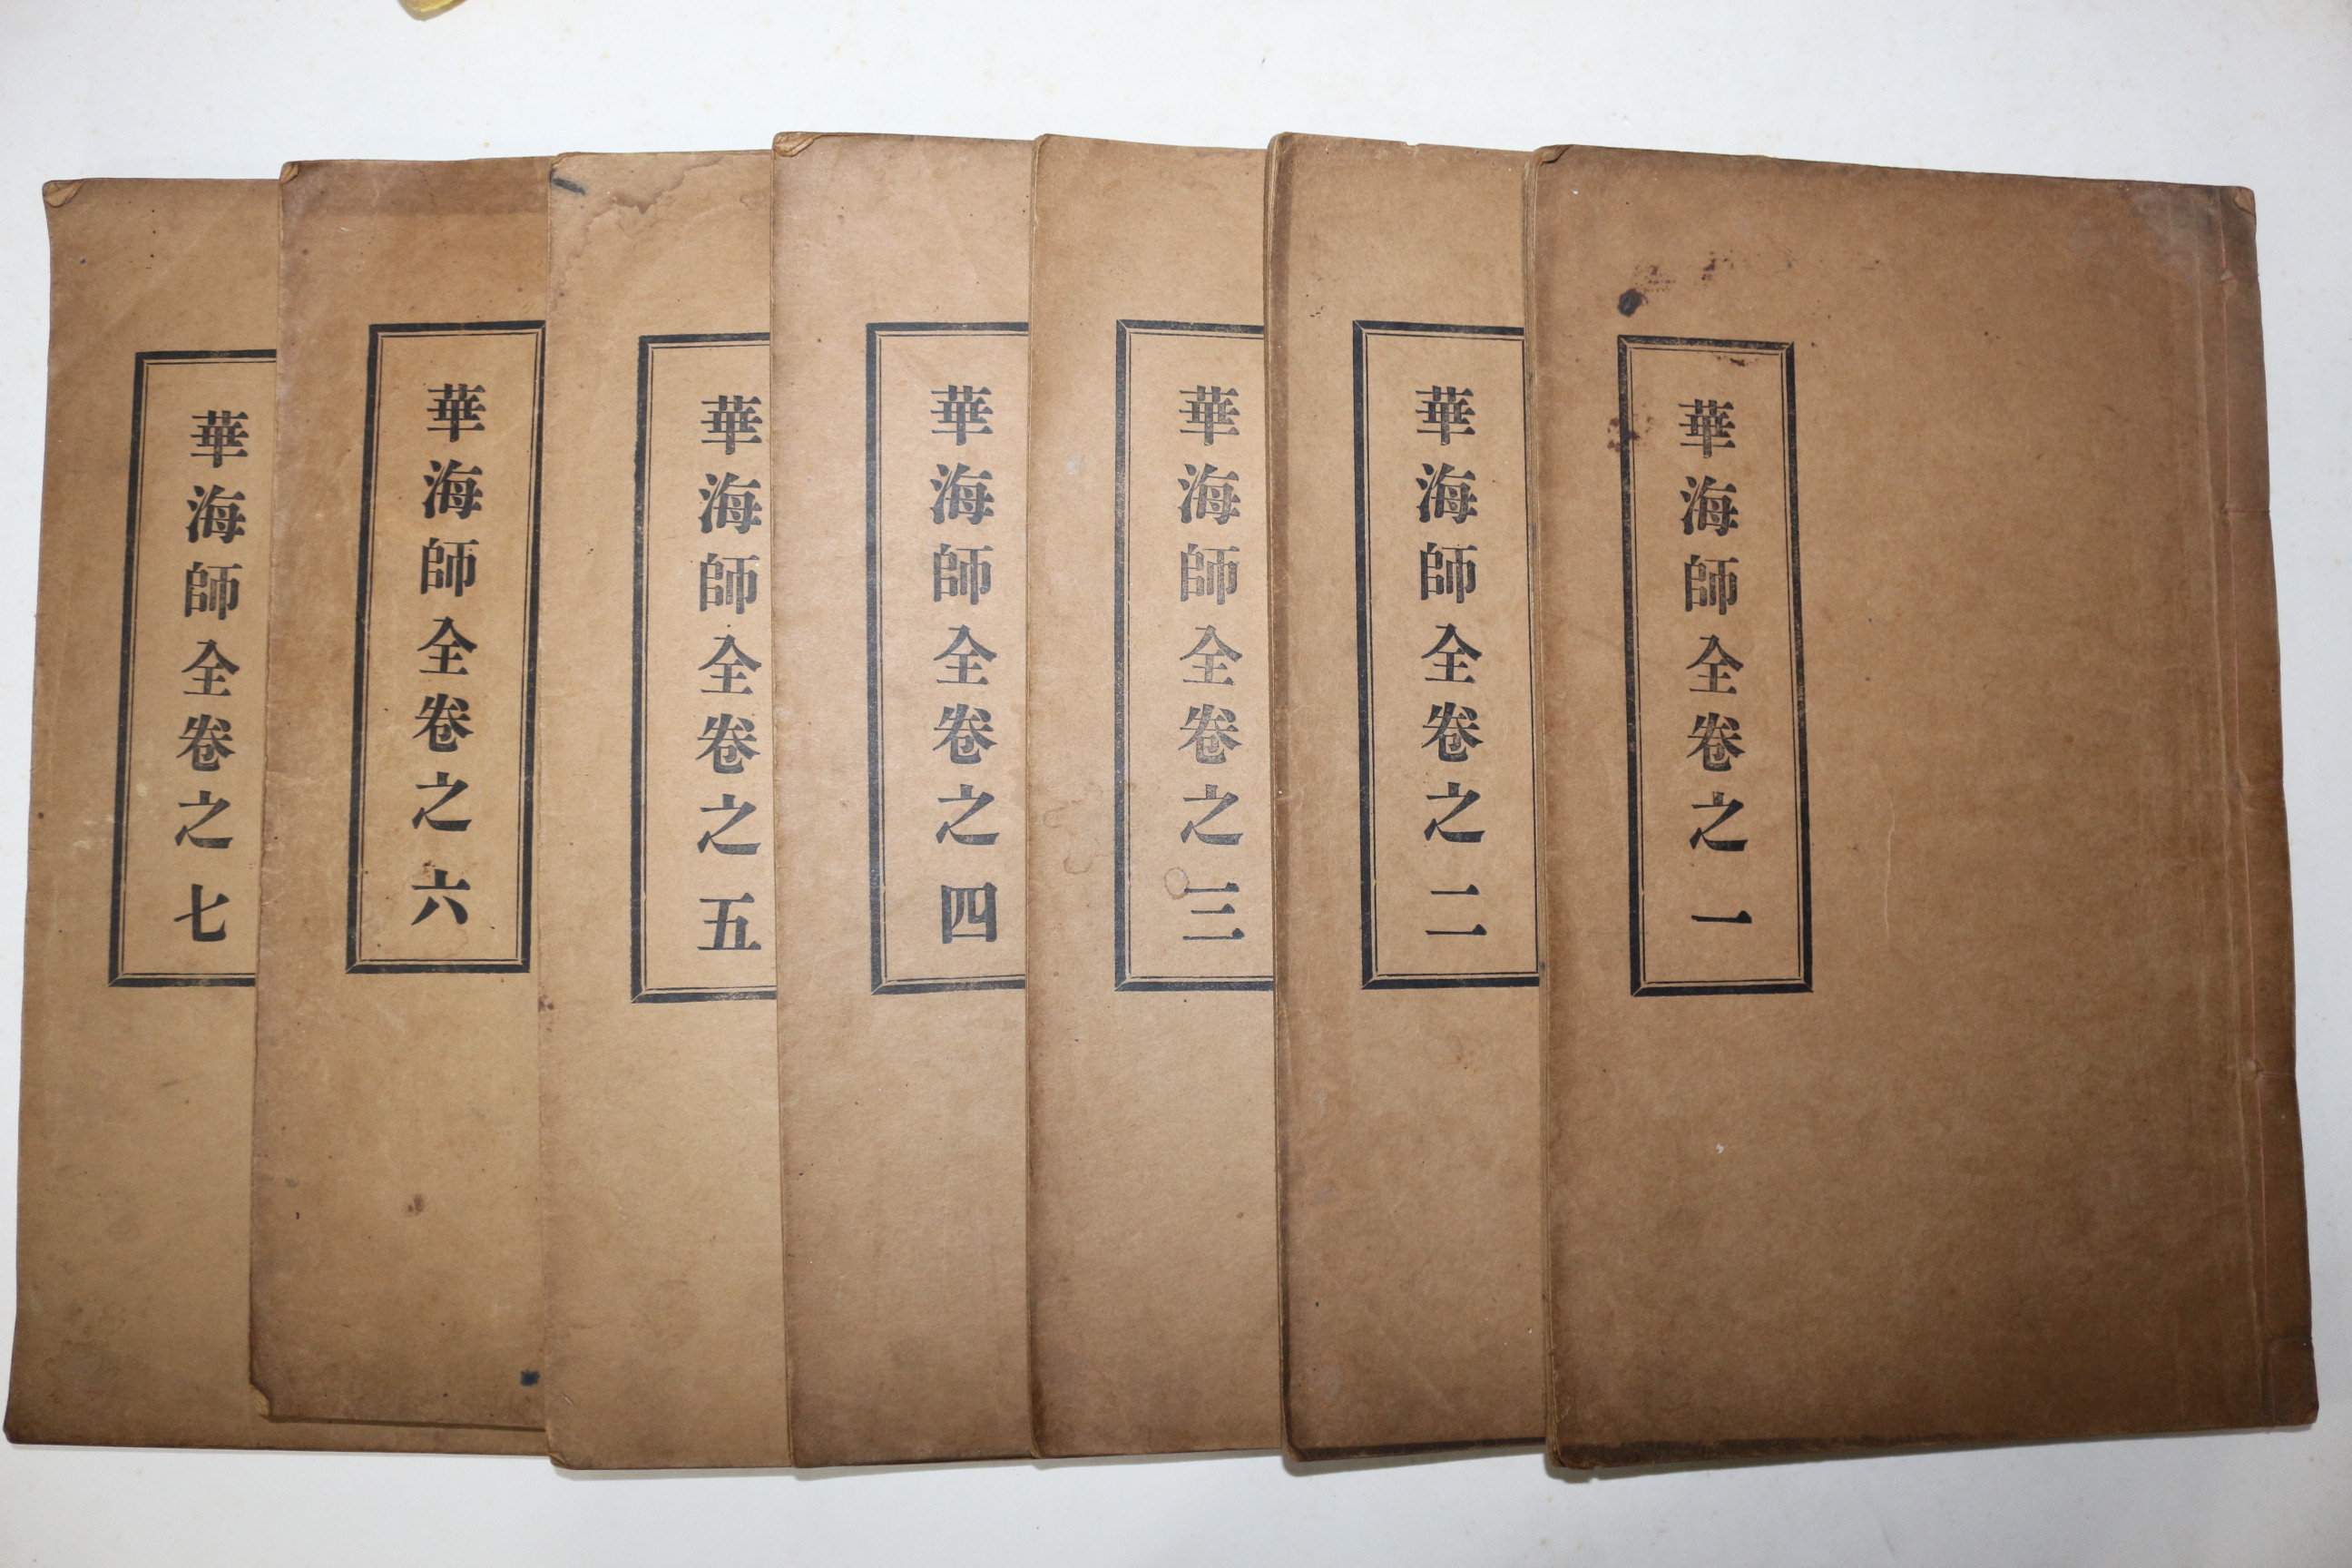 華海師全卷之一
華海師全卷之二
華海師全卷之三
華海師全卷之四
華海師全卷之五
華海師全卷之六
華海師全卷之七